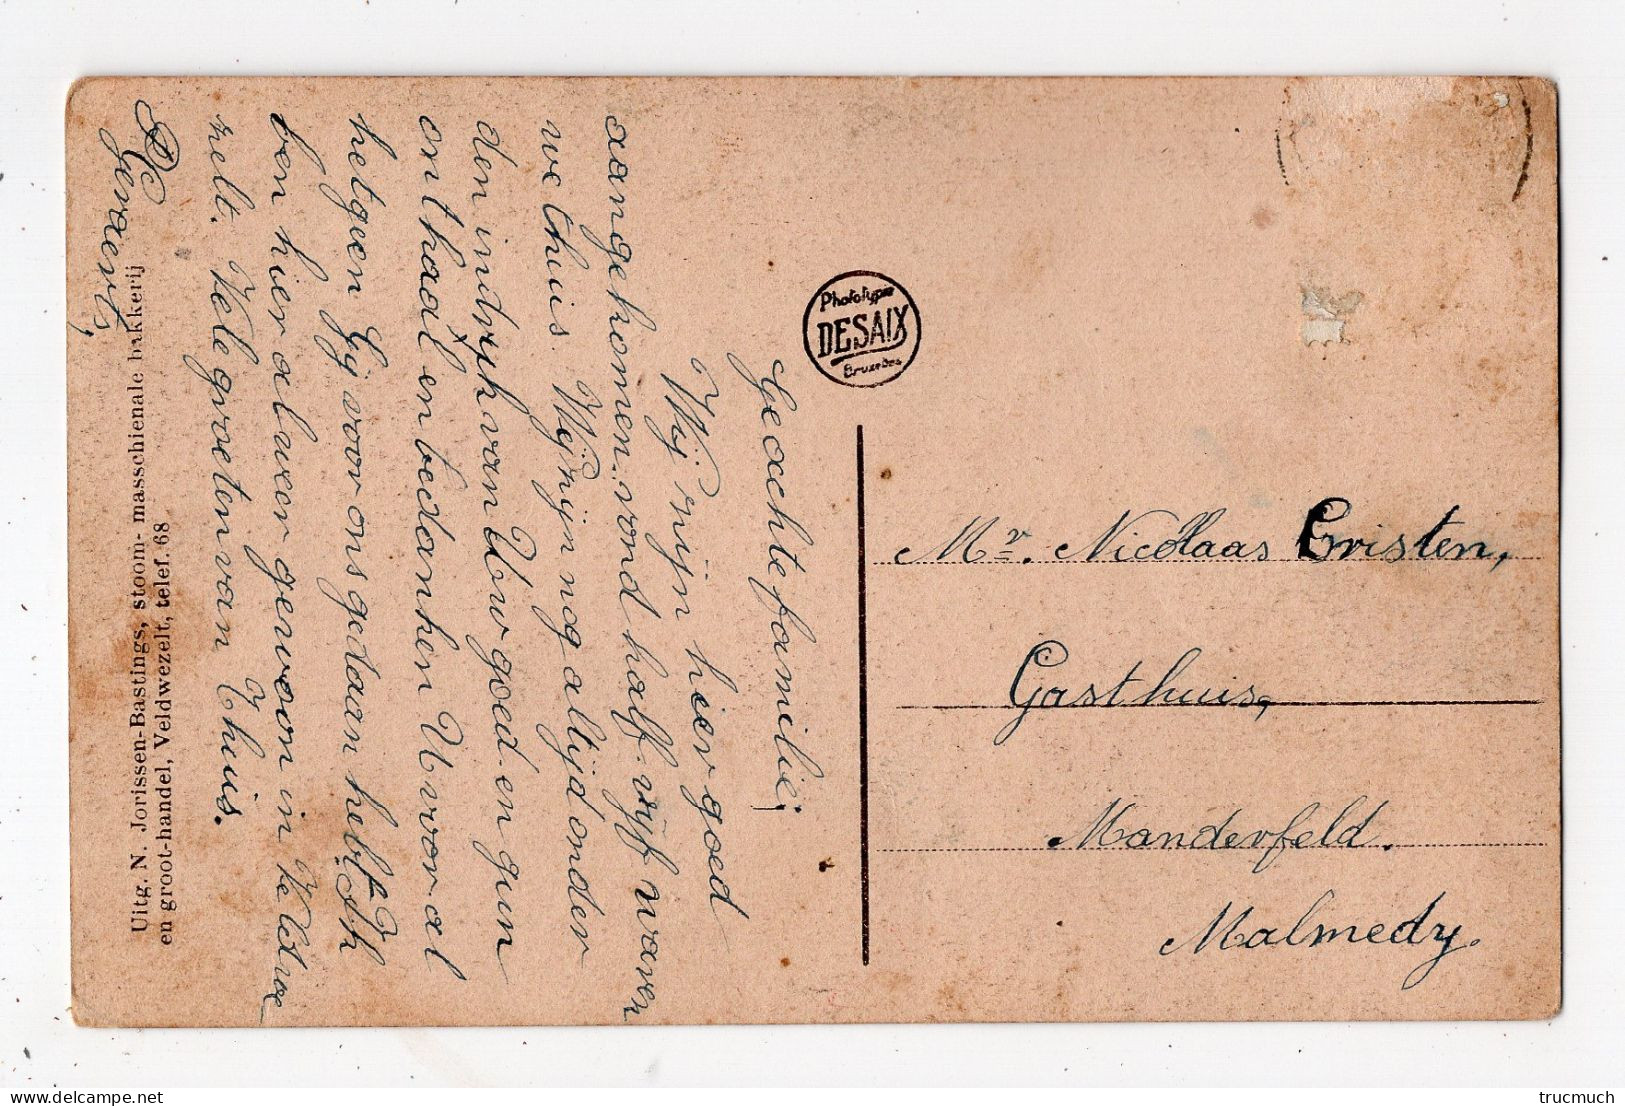 Geachte familie;
Wij zijn hier goed
aangekomen. rond half vijf waren
we thuis. Wij zijn nog altijd onder
den indruk van Uw goed en gun
onthaal en bedanken U vooral
hetgeen Gij voor ons gedaan hebt. Ik
ben hier alweer gewoon in Veldwe
zelt. Vele groeten van Thuis.
Gevaerts,
Uitg. N. Jorissen-Bastings, stoom- masschienale bakkerij
en groot-handel, Veldwezelt, telef. 68
Phototypie
DESAIX
Bruxelles
Mr. Nicolaas Cristen,
Gasthuis,
Manderfeld.
Malmedy.
trucmuch